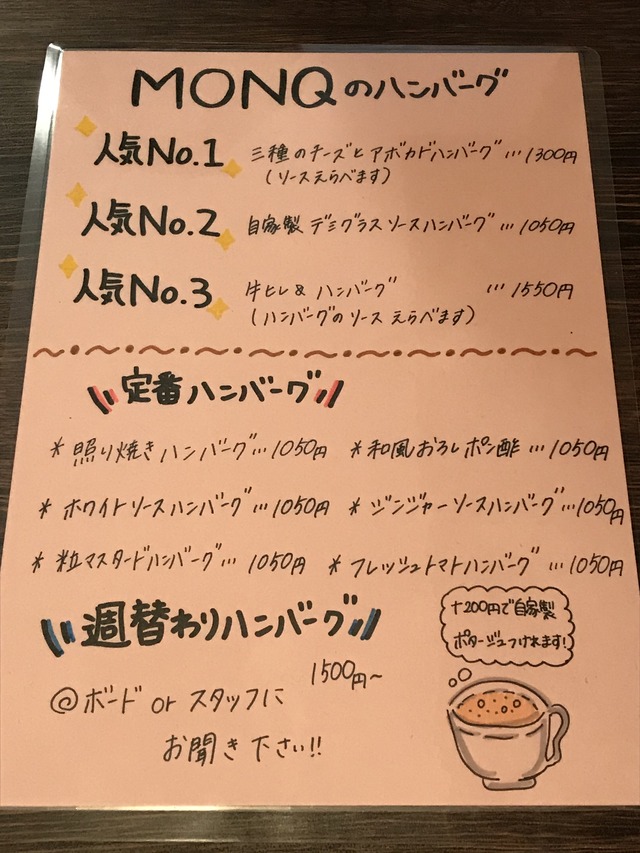 MONQのハンバーグ
人気No.1 三種のチーズとアボカドハンバーグ…1300円
(ソースえらべます)
人気No.2 自家製デミグラスソースハンバーグ…1050円
人気No.3 牛ヒレ&ハンバーグ …1550円
(ハンバーグのソースえらべます)
定番ハンバーグ
*照り焼きハンバーグ…1050円 *和風おろしポン酢…1050円
*ホワイトソースハンバーグ…1050円 *ジンジャーソースハンバーグ…1050円
*粒マスタードハンバーグ…1050円 *フレッシュトマトハンバーグ…1050円
週替わりハンバーグ
1500円~
@ボード or スタッフに
お聞き下さい!!
+200円で自家製
ポタージュつけれます!